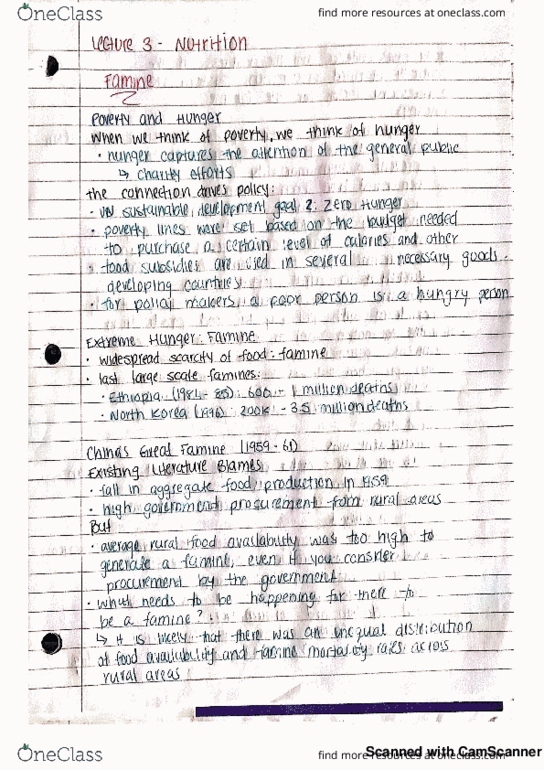 OneClass
find more resources at oneclass.com
Lecture 3 - Nutrition
Famine
Poverty and Hunger
When we think of poverty, we think of hunger
• hunger captures the attention of the general public
↳ charity efforts
the connection drives policy:
• UN sustainable development goal 2: Zero Hunger
• poverty lines were set based on the budget needed
to purchase a certain level of calories and other
• food subsidies are used in several necessary goods.
developing countries
• for policy makers, a poor person is a hungry person
Extreme Hunger: Famine
• widespread scarcity of food: famine
• last large scale famines:
• Ethiopia (1984 - 85): 600 - 1 million deaths
• North Korea (1996): 200K - 3.5 million deaths
China's Great Famine (1959 - 61)
Existing Literature Blames
• fall in aggregate food production in 1959
• high government procurement from rural areas
But
• average rural food availability was too high to
generate a famine, even if you consider
procurement by the government
• what needs to be happening for there to
be a famine?
↳ it is likely that there was an unequal distribution
of food availability and famine mortality rates across
rural areas
OneClass
find more resources at oneclass.com
Scanned with CamScanner